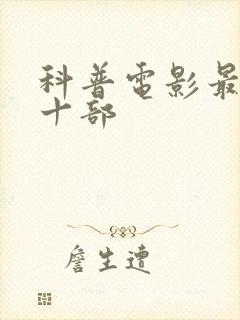 科普電影最
十部
詹生遭